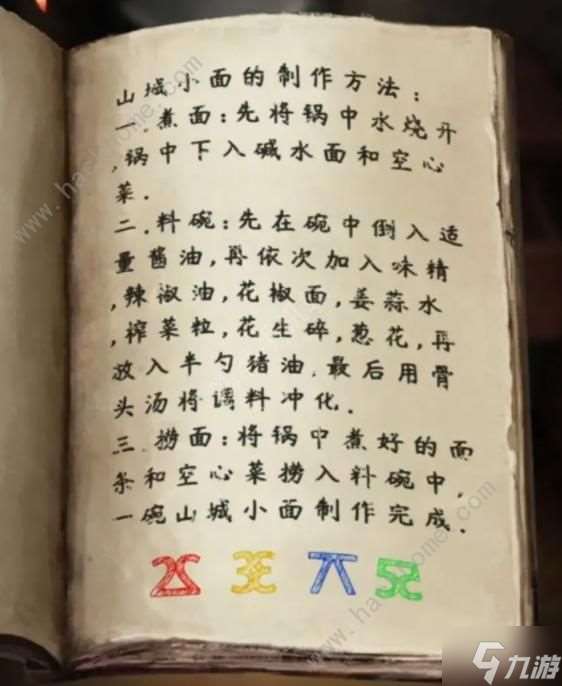 山城小面的制作方法:
一.煮面:先将锅中水烧开
,锅中下入碱水面和空心
菜.
二.料碗:先在碗中倒入适
量酱油,再依次加入味精
,辣椒油,花椒面,姜蒜水
,榨菜粒,花生碎,葱花,再
放入半勺猪油.最后用骨
头汤将调料冲化.
三.捞面:将锅中煮好的面
条和空心菜捞入料碗中,
一碗山城小面制作完成.
九游